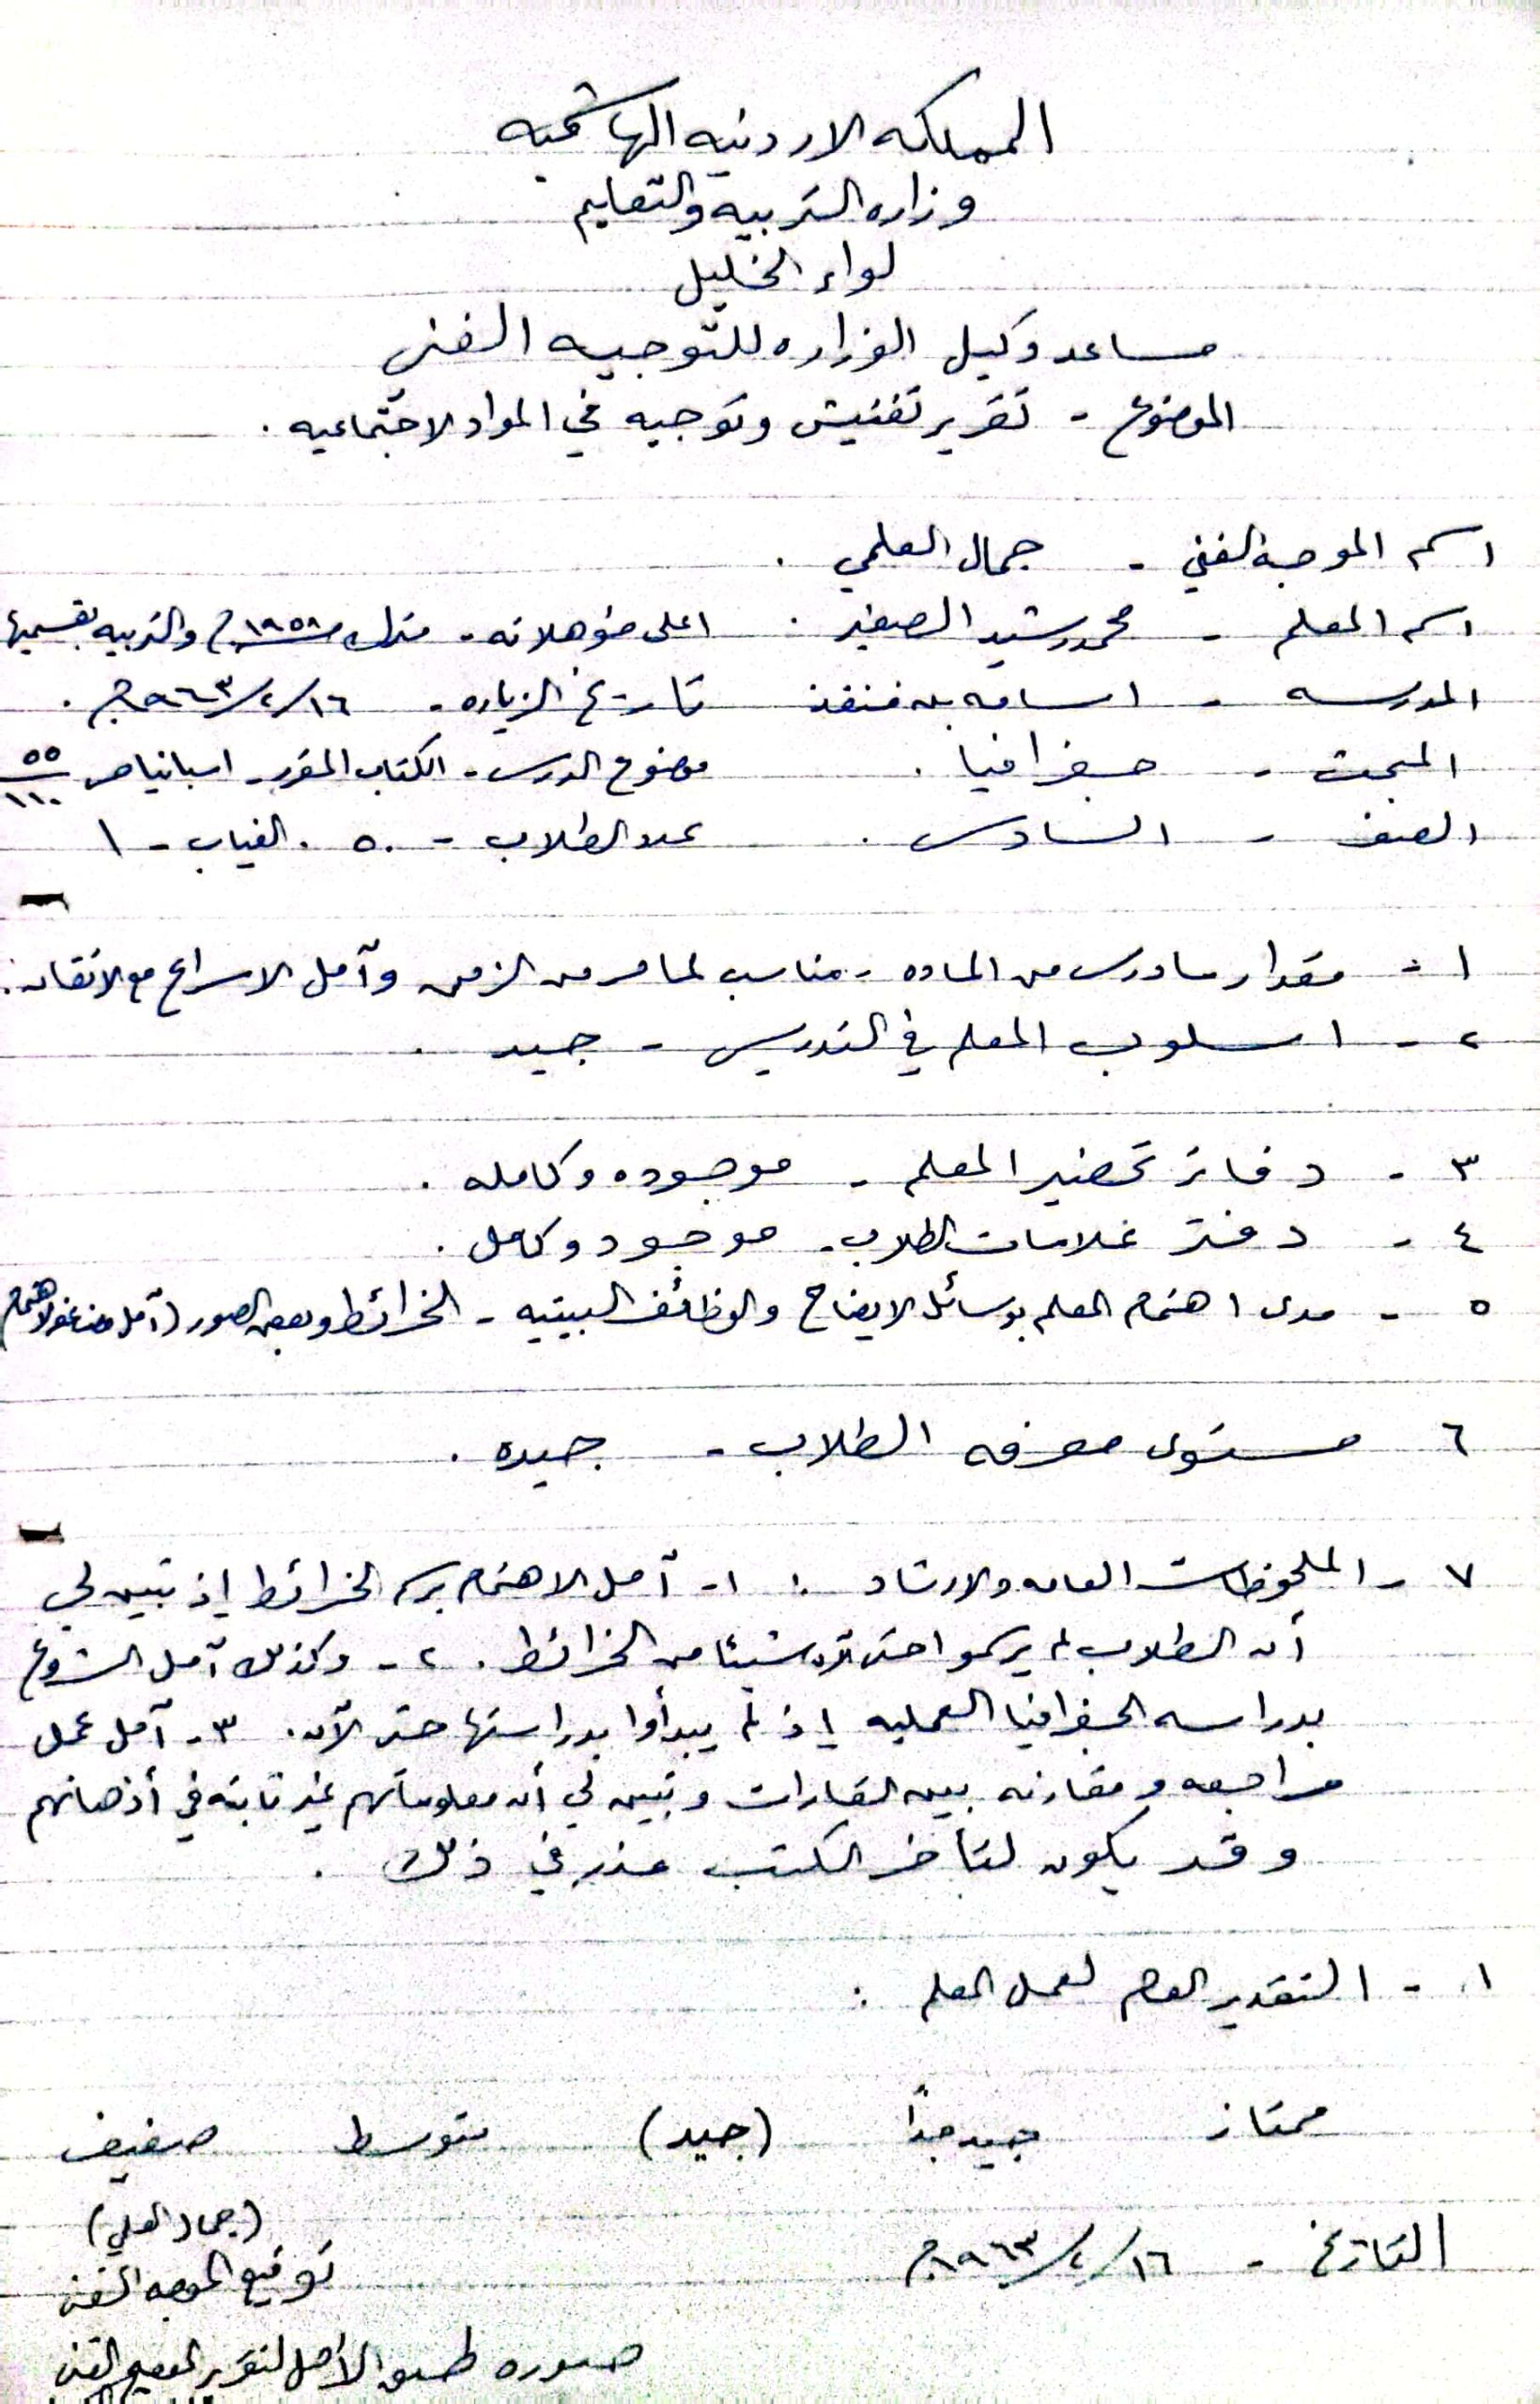 المملكه الاردنيه الهاشميه
وزاره التربيه والتعليم
لواء الخليل
مساعد وكيل الوزاره للتوجيه الفني
الموضوع - تقرير تفتيش وتوجيه في المواد الاجتماعيه .
اسم الموجه الفني - جمال العلمي .
اسم المعلم - محمد رشيد الصغير . اعلى مؤهلاته - مترك ١٩٥٨م والتربيه بقسميها
المدرسه - اسامه بن منقذ تاريخ الزياره - ١٦/٢/١٩٦٣م .
المبحث - جغرافيا . موضوع الدرس - الكتاب المقرر - اسبانيا ص ٥٥/١١٠
الصف - السادس . عدد الطلاب - ٥٠ . الغياب - ١
١ - مقدار ما درس من الماده - مناسب لما مر من الزمن وآمل الاسراع مع الاتقان .
٢ - اسلوب المعلم في التدريس - جيد .
٣ - دفاتر تحضير المعلم - موجوده وكامله .
٤ - دفتر علامات الطلاب - موجود وكامل .
٥ - مدى اهتمام المعلم بوسائل الايضاح والوظائف البيتيه - الخرائط وبعض الصور (آمل مضاعفة الاهتمام)
٦ مستوى معرفه الطلاب - جيده .
٧ - الملحوظات العامه والارشاد : ١ - آمل الاهتمام برسم الخرائط إذ تبين لي
أن الطلاب لم يرسموا حتى الآن شيئا من الخرائط . ٢ - وكذلك آمل الشروع
بدراسه الجغرافيا العمليه إذ لم يبدأوا بدراستها حتى الآن . ٣ - آمل عمل
مراجعه ومقارنه بين القارات وتبين لي أن معلوماتهم غير ثابته في أذهانهم
وقد يكون لتأخر الكتب عذر في ذلك .
١. - التقدير العام لعمل المعلم :
ممتاز جيد جدًا (جيد) متوسط ضعيف
(جمال العلمي)
التاريخ - ١٦/٢/١٩٦٣م
توقيع الموجه الفني
صوره طبق الأصل لتقرير الموجه الفني